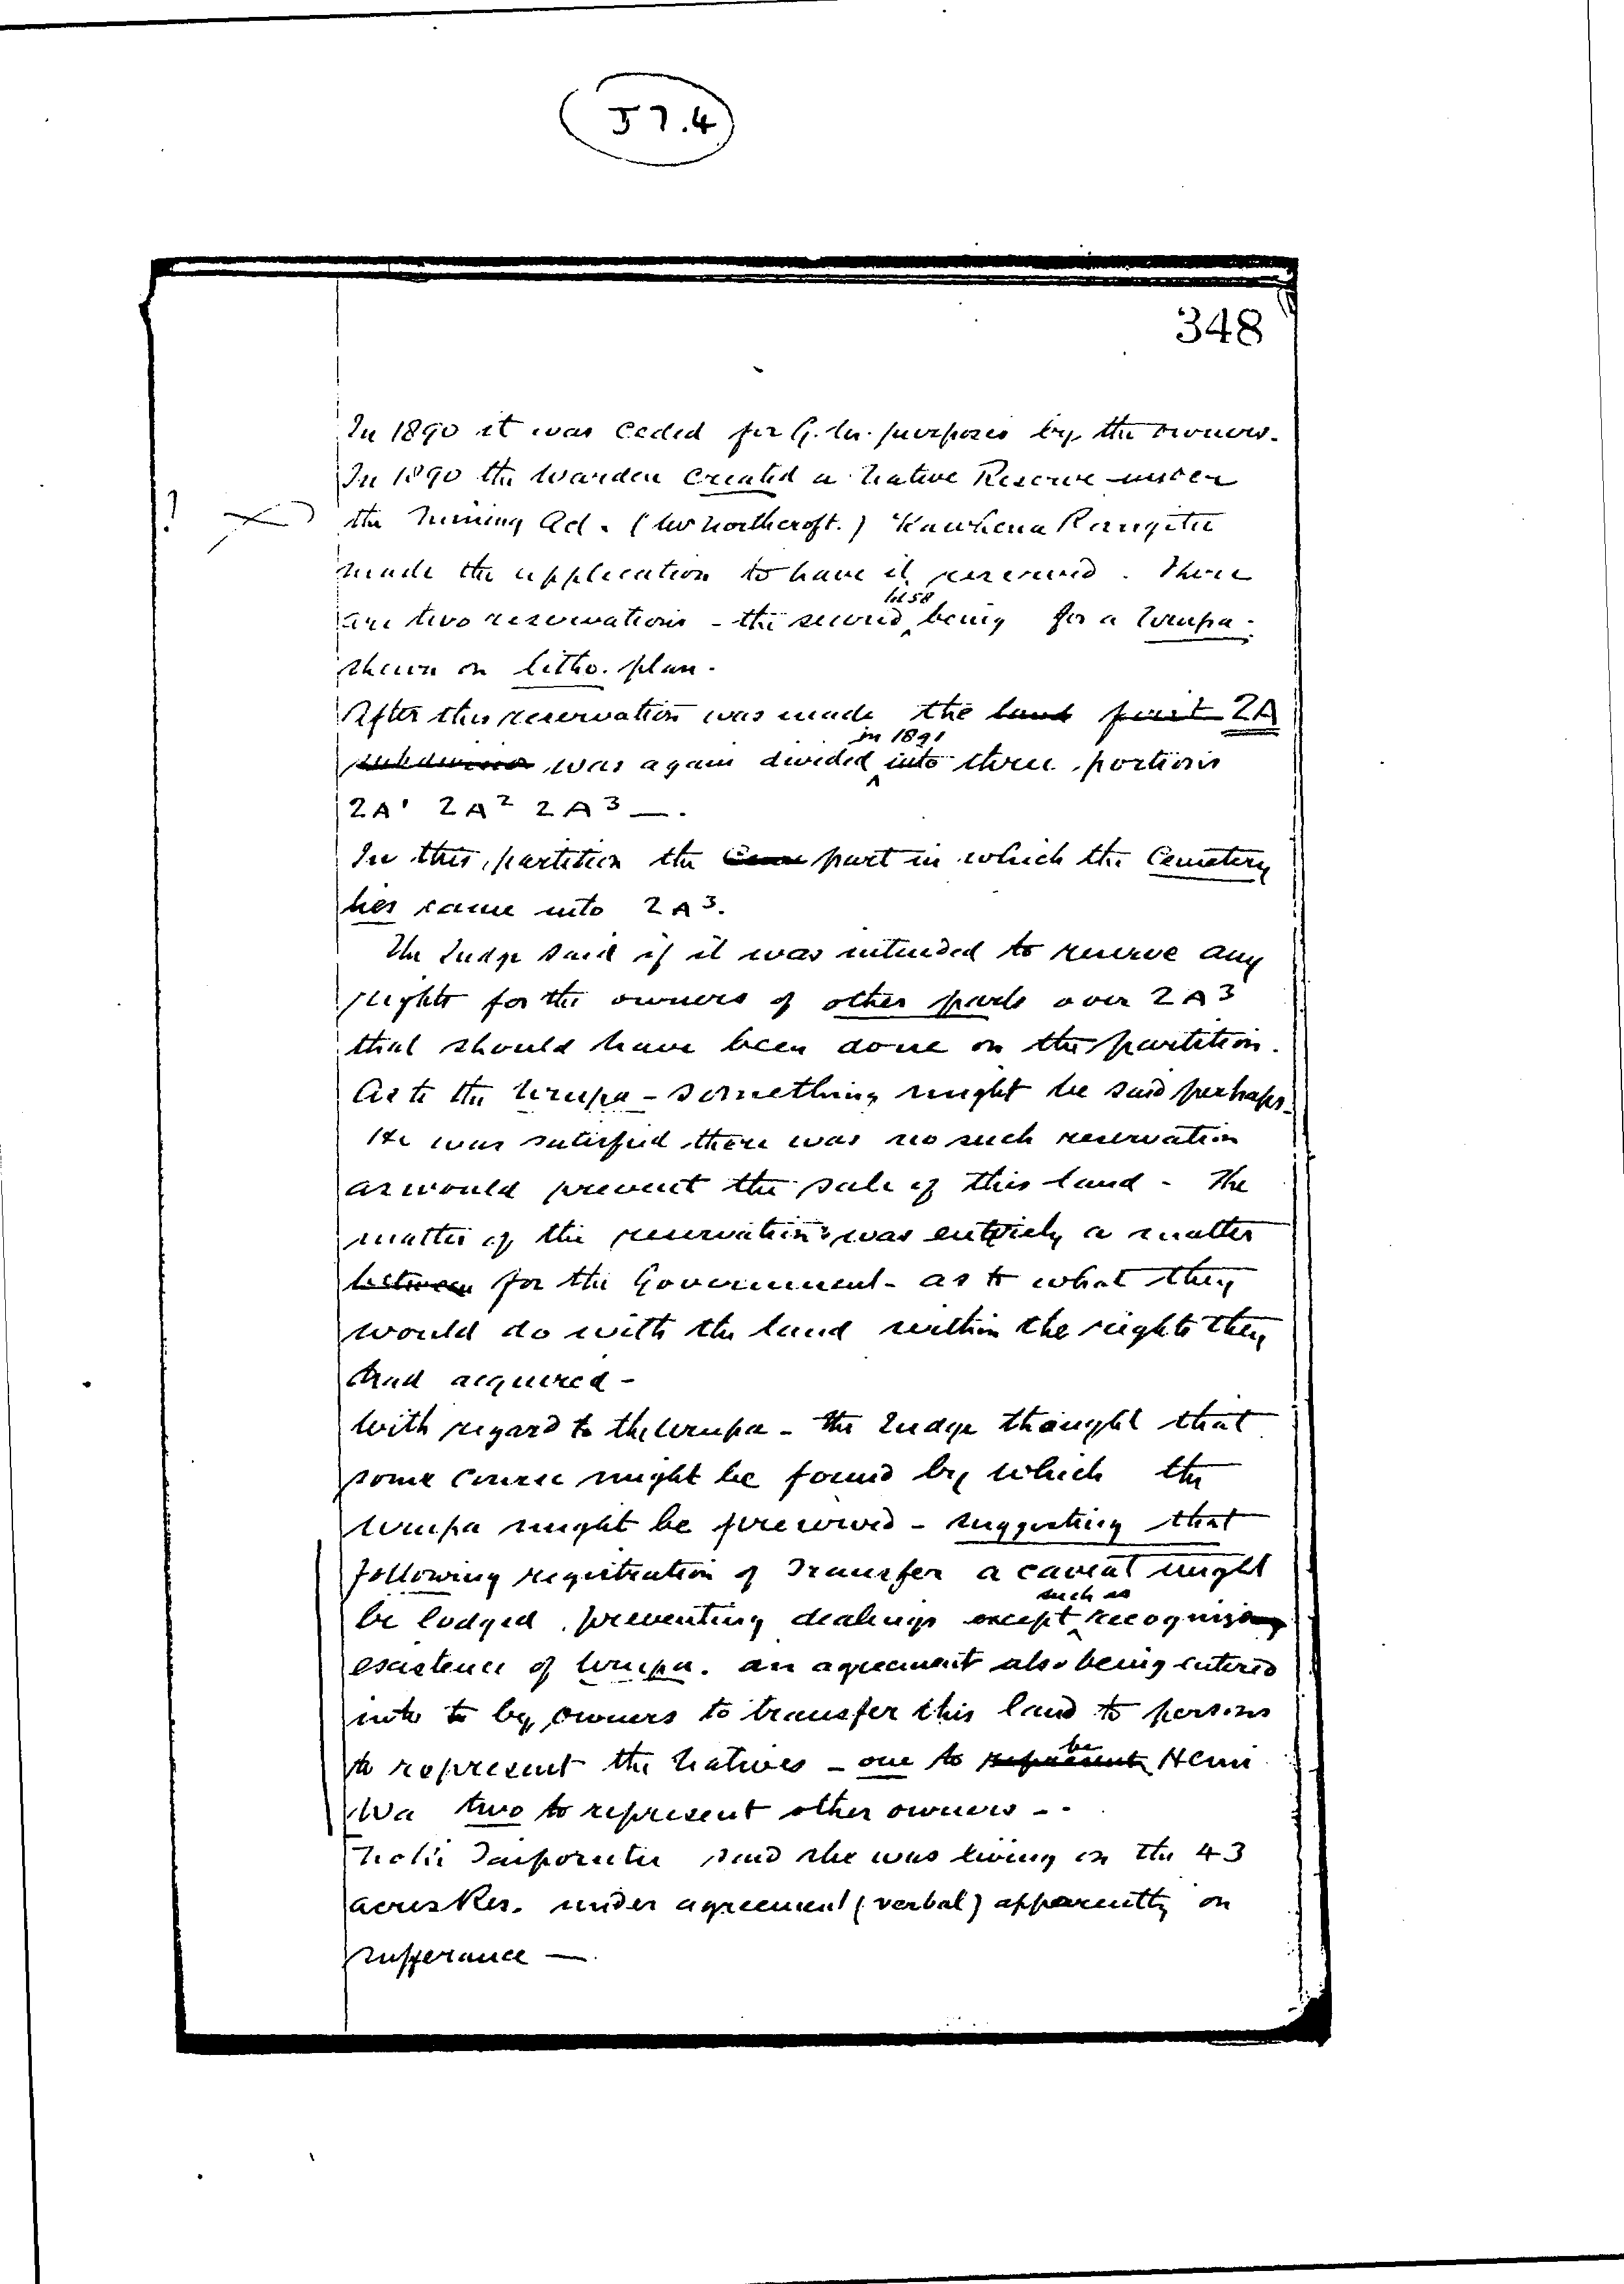 J7.4
348
In 1890 it was ceded for G. M. purposes by the owners.
In 1890 the Warden created a Native Reserve under
? X the Mining Act. (Mr Northcroft.) Kawhena Rangitu
made the application to have it reserved. There
are two reservations - the second being for a Urupa -
shewn on litho. plan.
After this reservation was made the land part 2A
was again divided in 1891 into three portions
2A1 2A2 2A3 —.
In this partition the part in which the Cemetery
lies came into 2A3.
The Judge said if it was intended to reserve any
rights for the owners of other parts over 2A3
that should have been done on the partition.
As to the Urupa - something might be said perhaps.
He was satisfied there was no such reservation
as would prevent the sale of this land - The
matter of the reservations was entirely a matter
between for the Government - as to what they
would do with the land within the rights they
had acquired -
With regard to the Urupa - the Judge thought that
some course might be found by which the
Urupa might be preserved - suggesting that
following registration of Transfer a caveat might
be lodged preventing dealings except such as recognizing
existence of Urupa. an agreement also being entered
into to by owners to transfer this land to persons
to represent the Natives - one to represent be Hemi
Wa two to represent other owners - -
said she was living on the 43
acres Res. under agreement (verbal) apparently on
sufferance —.